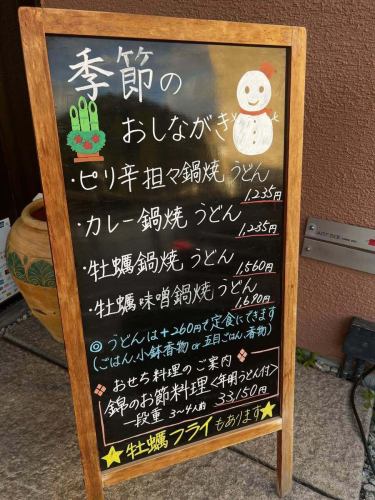 季節の
おしながき
・ピリ辛担々鍋焼うどん
1,235円
・カレー鍋焼うどん
1,235円
・牡蠣鍋焼うどん
1,560円
・牡蠣味噌鍋焼うどん
1,690円
◎うどんは+260円で定食にできます
(ごはん、小鉢香物 or 五目ごはん、香物)
おせち料理のご案内
錦のお節料理<年明うどん付>
一段重 3〜4人前 33,150円
★牡蠣フライもあります★